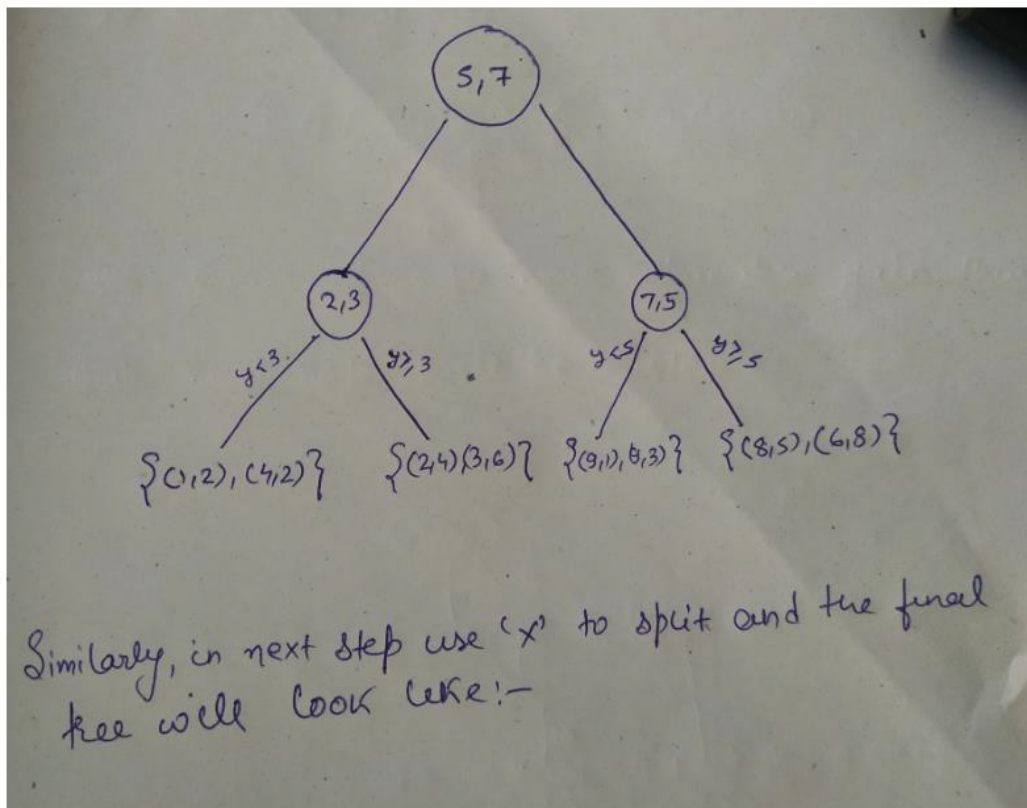 5,7
2,3
7,5
y<3
y≥3
y<5
y≥5
{(1,2),(4,2)}
{(2,4)(3,6)}
{(9,1),(8,3)}
{(8,5),(6,8)}
Similarly, in next step use 'x' to split and the final
tree will look like:-